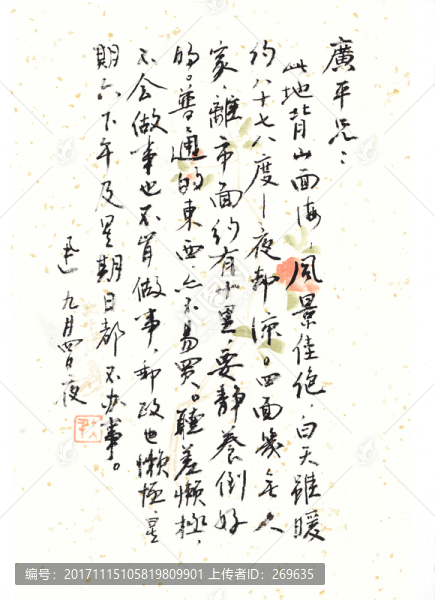 廣平兄：
此地背山面海，風景佳絕，白天雖暖
約八十七八度—夜却凉。四面幾無人
家，離市面約有十里，要靜養倒好
的。普通的東西亦不易買。聽差懶極，
不会做事也不肯做事，郵政也懶極，星
期六下午及星期日都不办事。
迅 九月四日夜
编号：20171115105819809901 上传者ID：269635